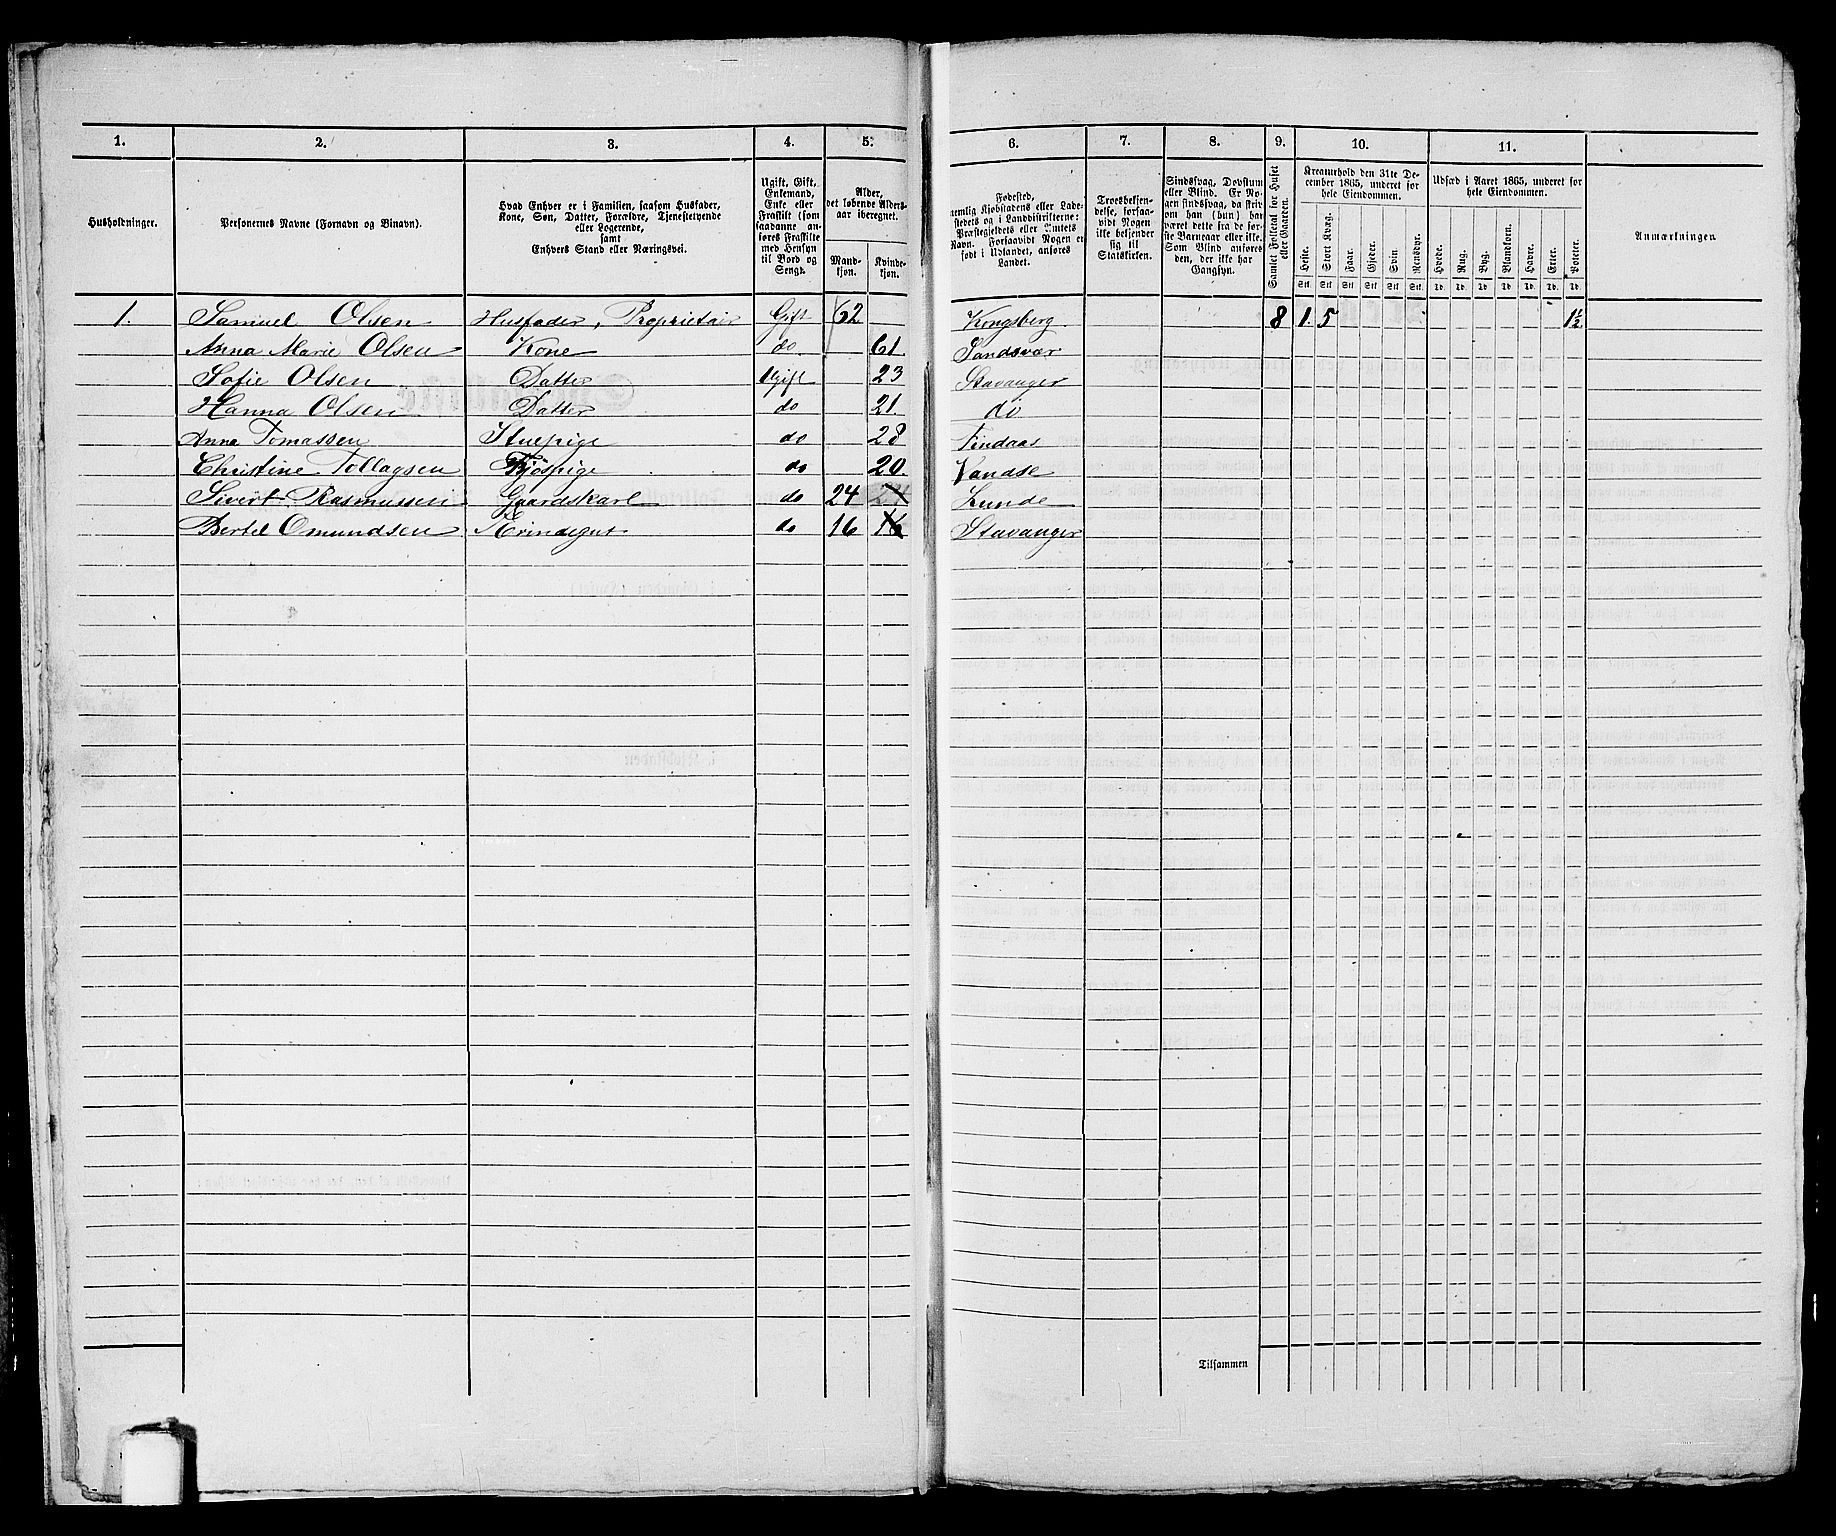 1. 2. 3. 4. 5. 6. 7. 8. 9. 10. 11.
Husholdninger.
Personernes Navne (Fornavn og Binavn).
Hvad Enhver er i Familien, saasom Husfader,
Kone, Søn, Datter, Forældre, Tjenestetyende
eller Logerende,
samt
Enhvers Stand eller Næringsvei.
Ugift, Gift,
Enkemand,
Enke eller
Fraskilt (som
saadanne an-
føres Fraskilte
med Hensyn
til Bord og
Seng).
Alder,
det løbende Alders-
aar iberegnet.
Mand-
kjøn.
Kvinde-
kjøn.
Fødested,
nemlig Kjøbstadens eller Lade-
stedets og i Landdistrikterne:
Præstegjeldets eller Annexets
Navn. Forsaavidt Nogen er
født i Udlandet, anføres
Landet.
Troesbekjen-
delse, forsaa-
vidt Nogen
ikke bekjender
sig til
Statskirken.
Sindssvag, Døvstum
eller Blind. Er No-
gen sindssvag, da skriv
om han (hun) har
været dette fra de før-
ste Barneaar eller ikke.
Som Blind anføres
den, der ikke har
Gangsyn.
Samlet Folketal for Huset
eller Gaarden.
Kreaturhold den 31te De-
cember 1865, underet før
hele Eiendommen.
Heste. Stort Kvæg. Faar. Gjeder. Svin. Rensdyr.
Stk. Stk. Stk. Stk. Stk. Stk.
Udsæd i Aaret 1865, underet før
hele Eiendommen.
Hvede. Rug. Byg. Blandkorn. Havre. Erter. Poteter.
Td. Td. Td. Td. Td. Td. Td.
Anmærkninger
1. Samuel Olsen Husfader, Proprietair Gift 62 Kongsberg 8 1. 5 1½
Anna Marie Olsen Kone do. 61. Sandsvær
Sofie Olsen Datter Ugift 23 Stavanger
Hanna Olsen Datter do 21. do
Anna Tomassen Stuepige do 28 Findaas
Christine Tollagsen Kjøspige do 20. Vandse
Sivert Rasmussen Gaardskarl do 24 24 Lunde
Bertel Omundsen Ærindegut do 16 16 Stavanger
Tilsammen